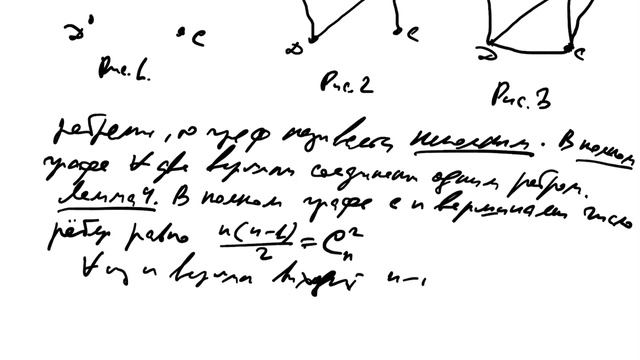 D C D C D C
Рис. 1. Рис. 2 Рис. 3
ребрами, то граф называется полным. В полном
графе ∀ две вершины соединены одним ребром.
Лемма 4. В полном графе с n вершинами число
рёбер равно n(n-1)/2 = C_n^2
∀ из n вершин выходит n-1